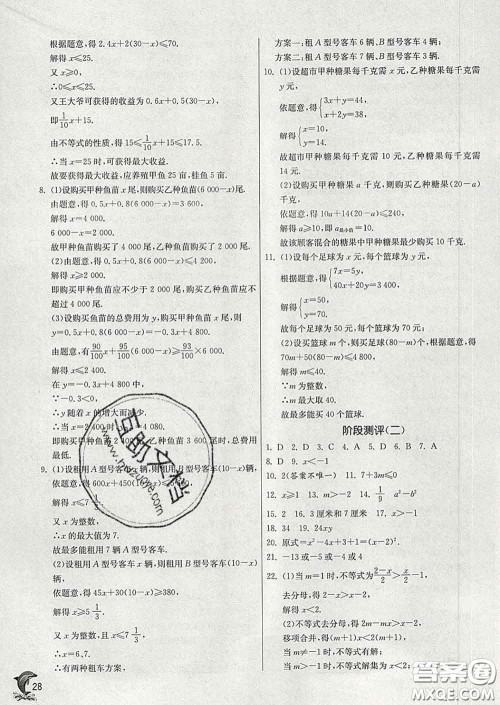 根据题意,得 2.4x+2(30-x)≤70.
解得 x≤25.
又 x≥0,
∴0≤x≤25.
又王大爷可获得的收益为 0.6x+0.5(30-x),
即 1/10 x+15.
由不等式的性质,得 15≤1/10 x+15≤17.5.
∴当 x=25 时,可获得最大收益.
故要获得最大收益,应养殖甲鱼 25 亩,桂鱼 5 亩.
8. (1)设购买甲种鱼苗 x 尾,则购买乙种鱼苗(6 000-x)尾.
由题意,得 0.5x+0.8(6 000-x)=3 600.
解得 x=4 000.
故甲种鱼苗购买了 4 000 尾,乙种鱼苗购买了 2 000 尾.
(2)由题意,得 0.5x+0.8(6 000-x)≤4 200,
解得 x≥2 000.
即购买甲种鱼苗应不少于 2 000 尾,购买乙种鱼苗应不超过 4 000 尾.
(3)设购买鱼苗的总费用为 y,则
y=0.5x+0.8(6 000-x)=-0.3x+4 800.
由题意,有 90/100 x+95/100(6 000-x)≥93/100×6 000.
解得 x≤2 400.
在 y=-0.3x+4 800 中,
∵-0.3<0,
∴y 随着 x 的增大而减少.
即购买甲种鱼苗 2 400 尾,乙种鱼苗 3 600 尾时,总费用最低.
9. (1)设租用 A 型号客车 x 辆,则租用 B 型号客车(10-x)辆.
依题意,得 600x+450(10-x)≤5 600.
解得 x≤7 1/3.
又 x 为整数,
∴x 的最大值为 7.
故最多能租用 7 辆 A 型号客车.
(2)设租用 A 型号客车 x 辆,则租用 B 型号客车(10-x)辆.
依题意,得 45x+30(10-x)≥380.
解得 x≥5 1/3.
又 x 为整数,且 x≤7 1/3,
∴x=6,7.
∴有两种租车方案,
方案一:租 A 型号客车 6 辆、B 型号客车 4 辆;
方案二:租 A 型号客车 7 辆、B 型号客车 3 辆.
10. (1)设超市甲种糖果每千克需 x 元,乙种糖果每千克需 y 元,
依题意,得 {3x+y=44, x+2y=38.
解得 {x=10, y=14.
故超市甲种糖果每千克需 10 元,乙种糖果每千克需 14 元.
(2)设购买甲种糖果 a 千克,则购买乙种糖果(20-a)千克.
依题意,得 10a+14(20-a)≤240.
解得 a≥10,即 a最小值=10.
故该顾客混合的糖果中甲种糖果最少购买 10 千克.
11. (1)设每个足球为 x 元,每个篮球为 y 元,
根据题意,得 {7x=5y, 40x+20y=3 400.
解得 {x=50, y=70.
故每个足球为 50 元,每个篮球为 70 元;
(2)设购买篮球 m 个,则买足球(80-m)个,根据题意,得 70m+50(80-m)≤4 800.
解得 m≤40.
∵m 为整数,
∴m 最大取 40.
故最多能买 40 个篮球.
阶段测评(二)
1. D 2. C 3. A 4. C 5. D 6. D 7. A
8. D 9. x<-1
10. 2(答案不唯一) 11. 7+3m≤0
12. x≥1 13. 2 14. m≤2 15. 1/9 a²-b²
16. 2x 17. 3 厘米和 7 厘米
18. 34 19. 24xy
20. 原式=x²-4x+3+1=(x-2)².
21. -13 或-5 或-4
22. (1)当 m=1 时,不等式为 (2-x)/2>x/2-1,
去分母,得 2-x>x-2.
解得 x<2.
(2)不等式去分母,得 2m-mx>x-2.
移项合并,得(m+1)x<2(m+1).
∴当 m≠-1 时,不等式有解.
当 m>-1 时,不等式解集为 x<2,
28
答案圈
MXQE.COM